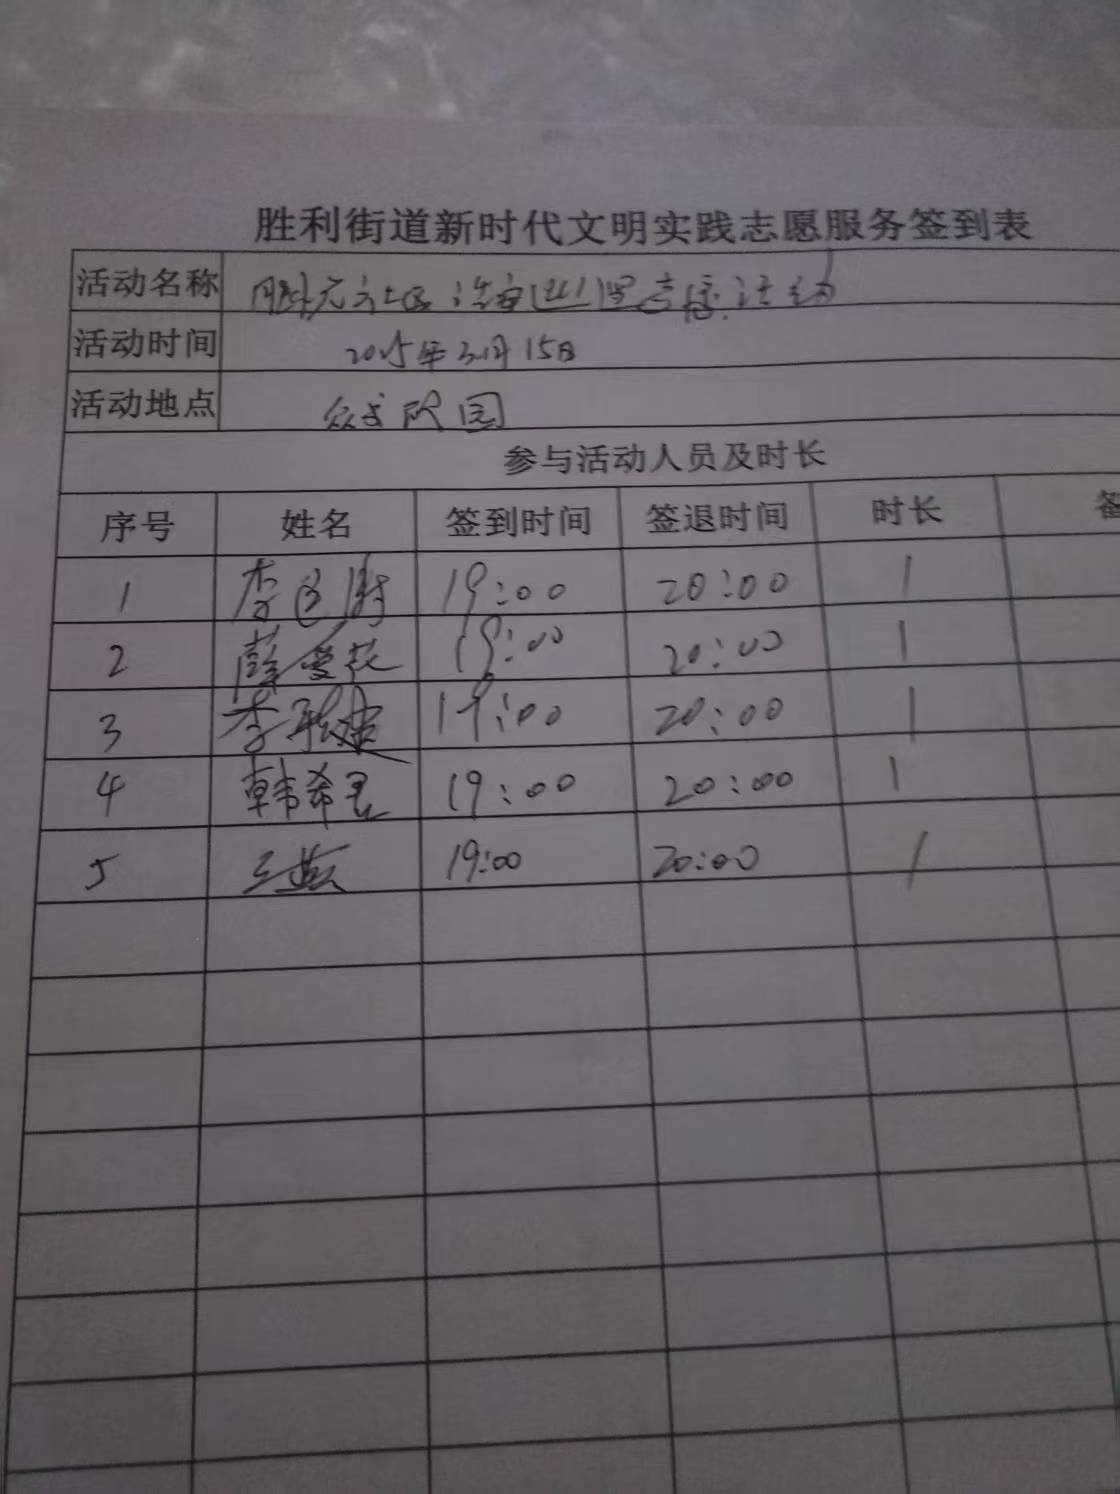 胜利街道新时代文明实践志愿服务签到表
活动名称 社区治安巡逻志愿活动
活动时间 2025年3月15日
活动地点
参与活动人员及时长
序号 姓名 签到时间 签退时间 时长
1 李 19:00 20:00 1
2 薛爱花 19:00 20:00 1
3 李 19:00 20:00 1
4 韩希 19:00 20:00 1
5 王燕 19:00 20:00 1